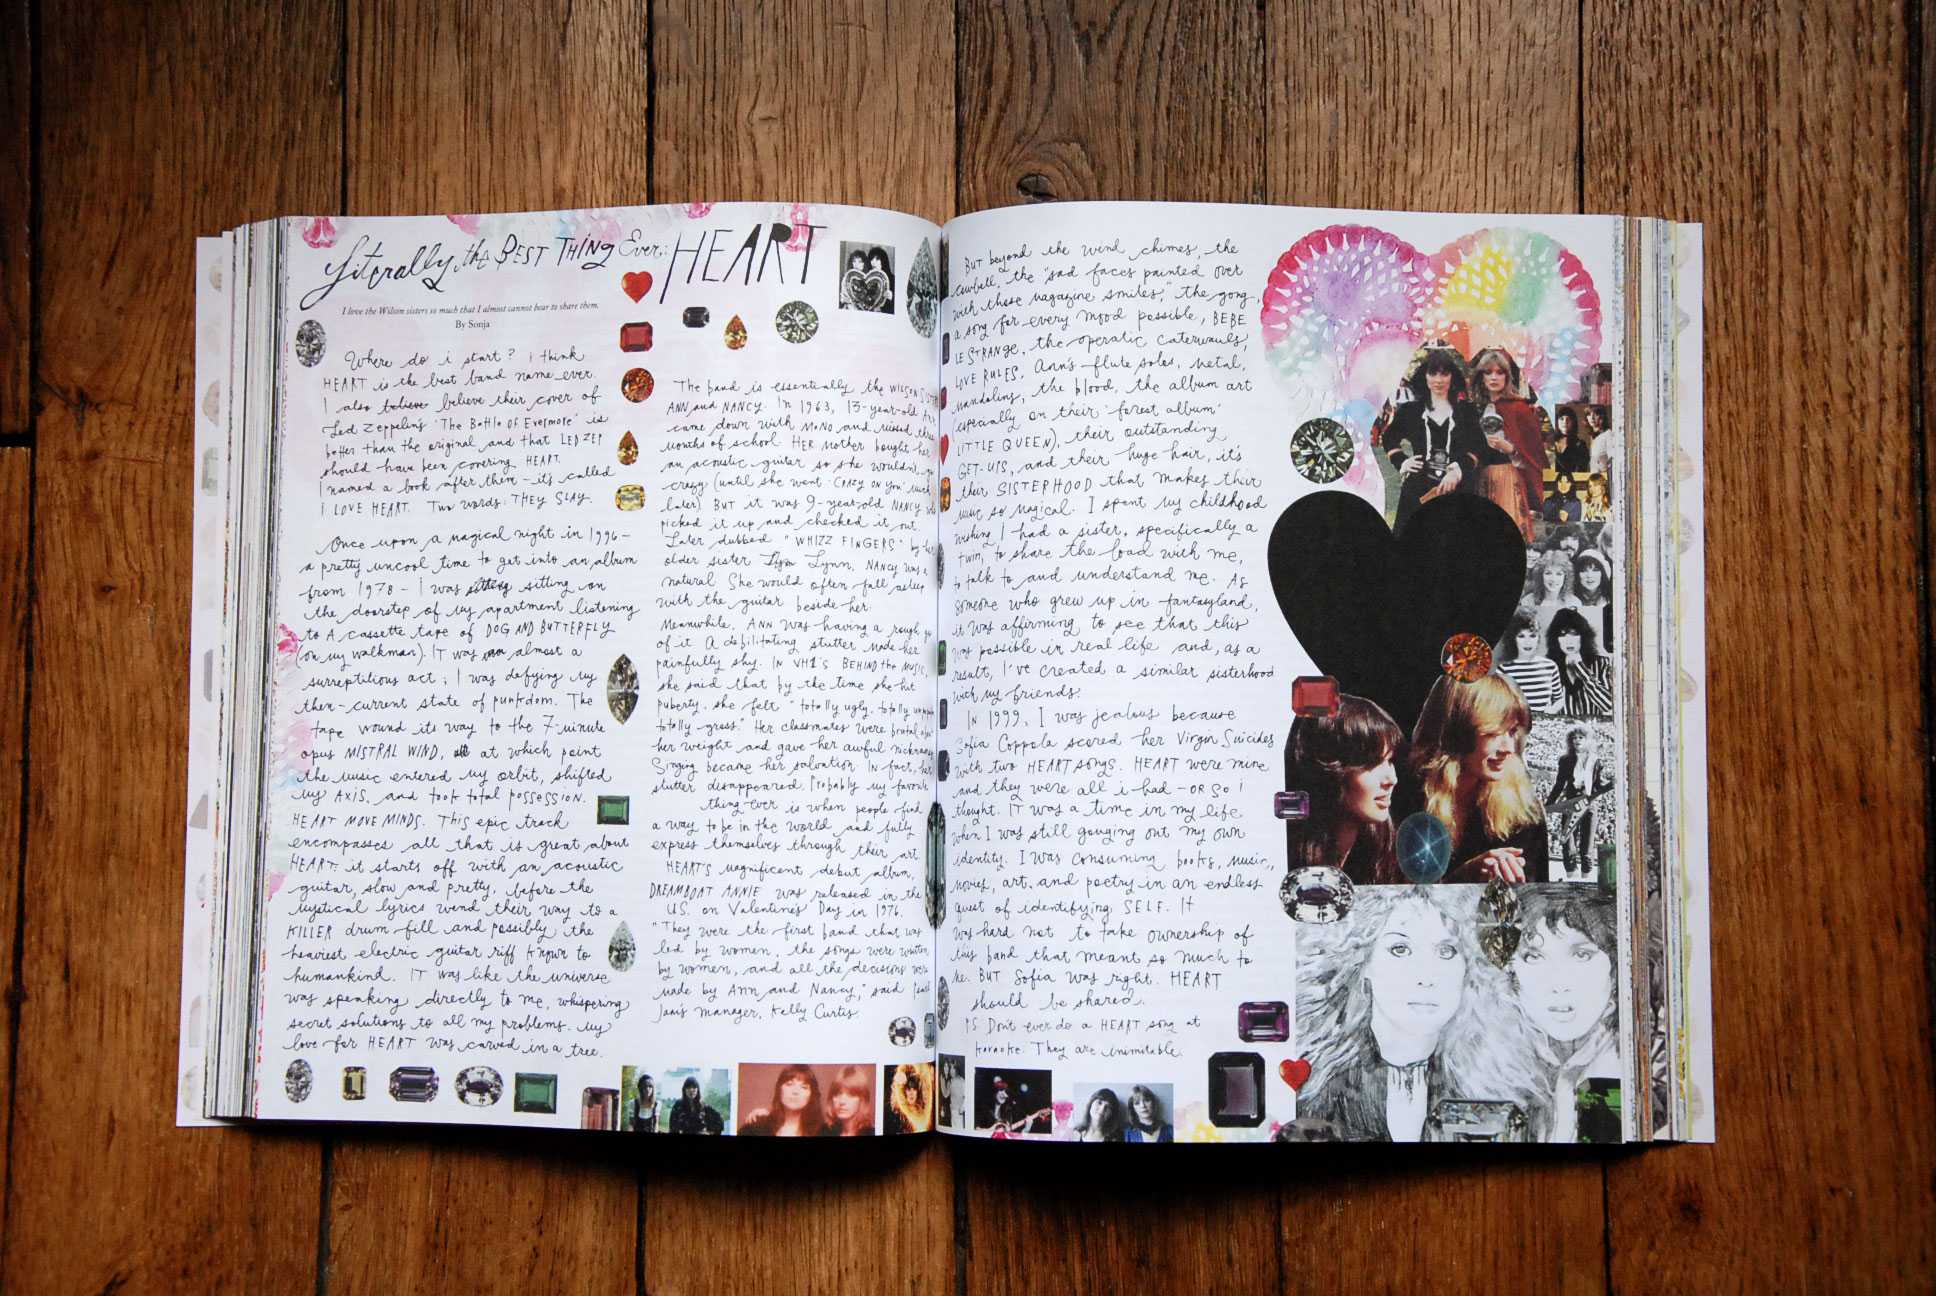 Literally the BEST THING Ever: HEART
I love the Wilson sisters so much that I almost cannot bear to share them.
By Sonja
Where do i start? i think
HEART is the best band name ever.
I also believe believe their cover of
Led Zeppelin's 'The Battle of Evermore' is
better than the original and that LED ZEP
should have been covering HEART.
I named a book after them – it's called
I LOVE HEART. Two words: THEY SLAY.
Once upon a magical night in 1996 –
a pretty uncool time to get into an album
from 1978 – I was sitting on
the doorstep of my apartment listening
to A cassette tape of DOG AND BUTTERFLY
(on my walkman). IT was almost a
surreptitious act; I was defying my
then-current state of punkdom. The
tape wound its way to the 7-minute
opus MISTRAL WIND, at which point
the music entered my orbit, shifted
my AXIS, and took total possession.
HEART MOVE MINDS. This epic track
encompasses all that is great about
HEART: it starts off with an acoustic
guitar, slow and pretty, before the
mystical lyrics wend their way to a
KILLER drum fill and possibly the
heaviest electric guitar riff known to
humankind. IT was like the universe
was speaking directly to me, whispering
secret solutions to all my problems. my
love for HEART was carved in a tree.
The band is essentially the WILSON
ANN and NANCY. In 1963, 13-year-old Ann
came down with MONO and missed three
months of school. HER mother bought her
an acoustic guitar so she wouldn't go
crazy (until she went 'CRAZY ON YOU' much
later) BUT it was 9-year-old NANCY who
picked it up and checked it out.
Later dubbed "WHIZZ FINGERS" by her
older sister Lynn, NANCY was a
natural She would often fall asleep
with the guitar beside her.
Meanwhile, ANN was having a rough go
of it A debilitating stutter made her
painfully shy. IN VH1'S BEHIND the MUSIC,
she said that by the time she hit
puberty, she felt "totally ugly, totally
totally gross." Her classmates were brutal about
her weight and gave her awful nicknames
Singing became her salvation In fact, her
stutter disappeared. Probably my favorite
thing ever is when people find
a way to be in the world and fully
express themselves through their art
HEART'S magnificent debut album,
DREAMBOAT ANNIE was released in the
U.S. on Valentine's Day in 1976.
"They were the first band that was
led by women, the songs were written
by women, and all the decisions were
made by Ann and Nancy," said
manager, Kelly Curtis.
But beyond the wind chimes, the
cowbell, the "sad faces painted over
with those magazine smiles," the gong,
a song for every mood possible, BEBE
LE STRANGE, the operatic caterwauls,
LOVE RULES, Ann's flute solos, metal,
mandolins, the blood, the album art
(especially on their 'forest album'
LITTLE QUEEN), their outstanding
GET-UPS, and their huge hair, it's
their SISTERHOOD that makes their
music so magical. I spent my childhood
wishing I had a sister, specifically a
twin, to share the load with me,
to talk to and understand me. As
someone who grew up in fantasyland,
it was affirming to see that this
was possible in real life and, as a
result, I've created a similar sisterhood
with my friends.
IN 1999, I was jealous because
Sofia Coppola scored her Virgin Suicides
with two HEART songs. HEART were mine
and they were all i had – OR SO I
thought. IT was a time in my life
when I was still gouging out my own
identity. I was consuming books, music,
movies, art, and poetry in an endless
quest of identifying SELF. It
was hard not to take ownership of
this band that meant so much to
me. BUT Sofia was right. HEART
should be shared.
PS Don't ever do a HEART song at
karaoke. They are inimitable.